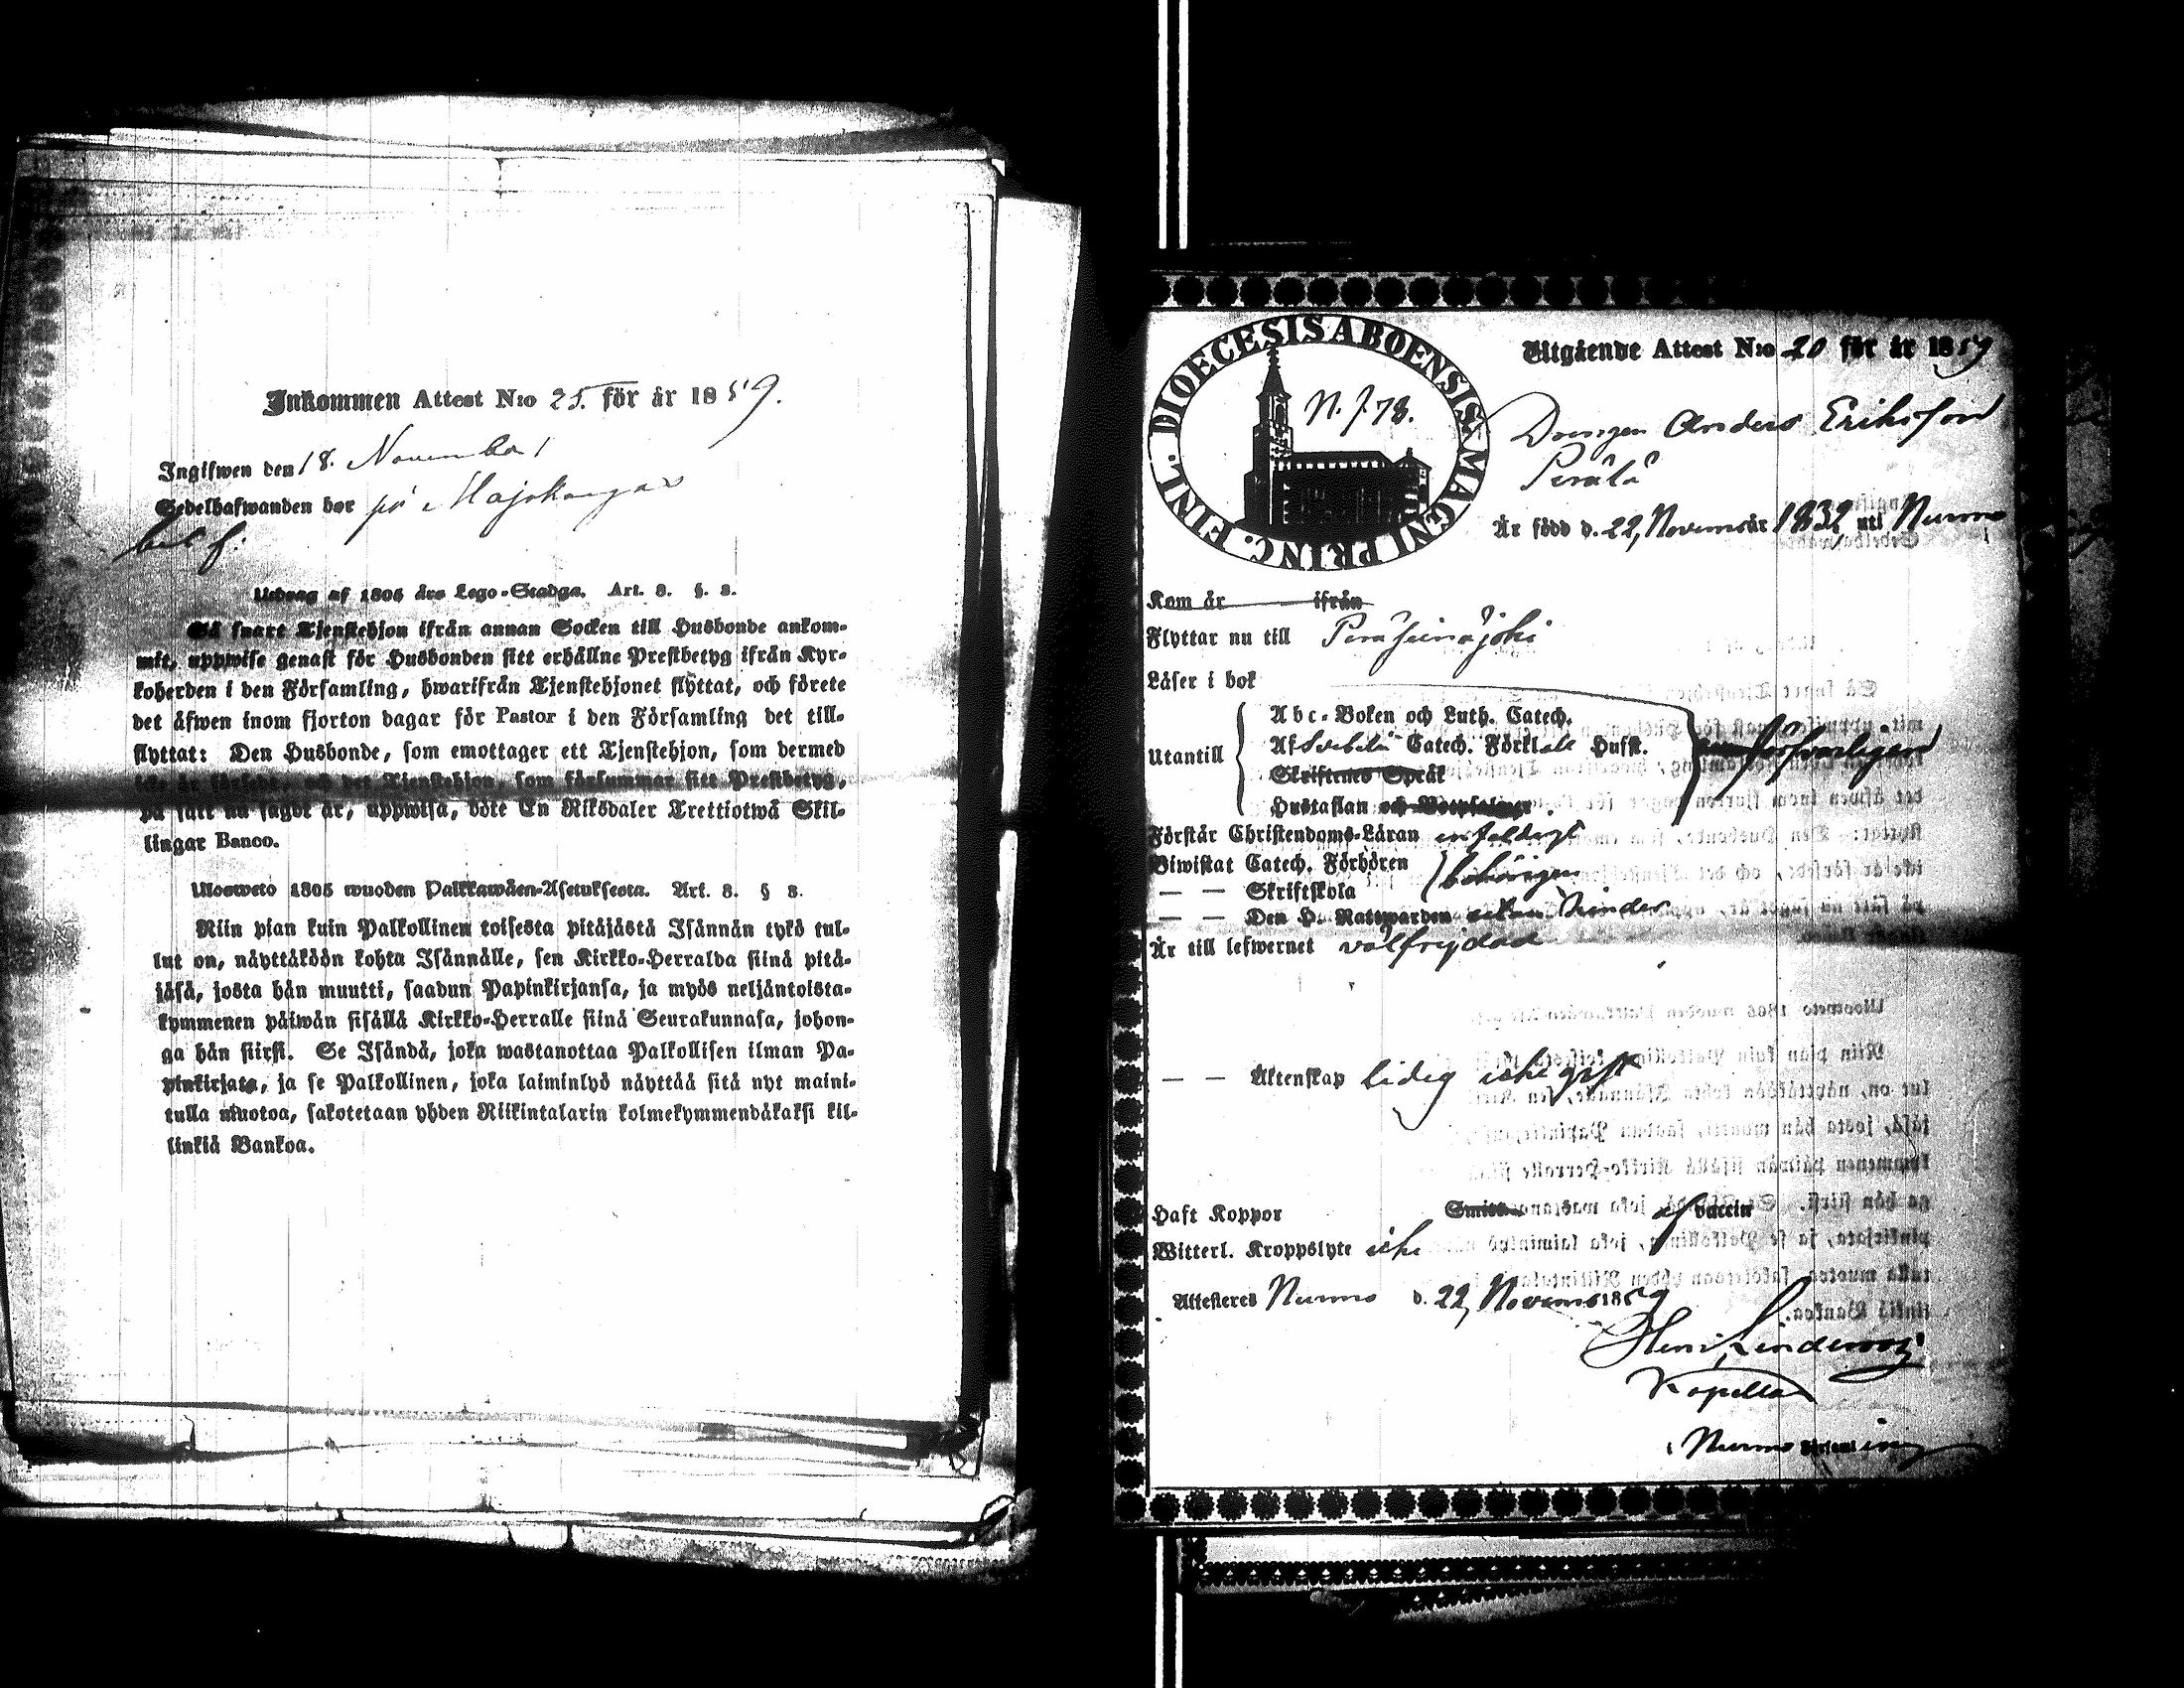 Inkommen Attest N:o 25. för år 1859.
Ingifwen den 18. November
Sedelhafwanden bor på Majokangas
Utdrag af 1805 års Lego-Stadga. Art. 8. §. 2.
Så snart Tjenstehjon ifrån annan Socken till Husbonde ankom-
mit, uppwise genast för Husbonden sitt erhållne Prestbetyg ifrån Kyr-
koherden i den Församling, hwarifrån Tjenstehjonet flyttat, och förete
det äfwen inom fjorton dagar för Pastor i den Församling det till-
flyttat: Den Husbonde, som emottager ett Tjenstehjon, som dermed
icke är försedt, och det Tjenstehjon, som försummar sitt Prestbetyg,
på sätt nu sagdt är, uppwisa, böte En Riksdaler Trettiotwå Skil-
lingar Banco.
Ulosweto 1805 wuoden Palkkawäen-Asetuksesta. Art. 8. § 2.
Niin pian kuin Palkollinen toisesta pitäjästä Isännän tykö tul-
lut on, näyttäköön kohta Isännälle, sen Kirkko-Herralda siinä pitä-
jäsä, josta hän muutti, saadun Papinkirjansa, ja myös neljäntoista-
kymmenen päiwän sisällä Kirkko-Herralle siinä Seurakunnasa, johon-
ga hän siirsi. Se Isändä, joka wastanottaa Palkollisen ilman Pa-
pinkirjata, ja se Palkollinen, joka laiminlyö näyttää sitä nyt maini-
tulla muotoa, sakotetaan yhden Riikintalarin kolmekymmendäkaksi kil-
linkiä Bankoa.
DIOECESIS ABOENSIS MAGNI PRINC. FINL.
N. f. 78.
Utgående Attest N:o 20 för år 1859
Drengen Anders Eriksson
Perälä
Är född d. 22, Novemb år 1832, uti Nurmo
Kom år ifrån
Flyttar nu till Peräseinäjoki
Läser i bok
Utantill
Abc-Boken och Luth. Catech.
Af Svebelii Catech. Förklale Husst.
Skriftenes Språk
Hustaflan och Botpsalmer.
försvarligen
Förstår Christendoms-Läran enfaldigt
Biwistat Catech. Förhören
— — Skriftskola
behörigen
— — Den H. Nattwarden utan hinder
Är till lefwernet välfrejdad
— — Äktenskap ledig icke gift
Haft Koppor af vaccin
Witterl. Kroppslyte icke
Attesteres Nurmo d. 22, Novemb 1859
Henr. Linderooz
Kapellan
i Nurmo Församling